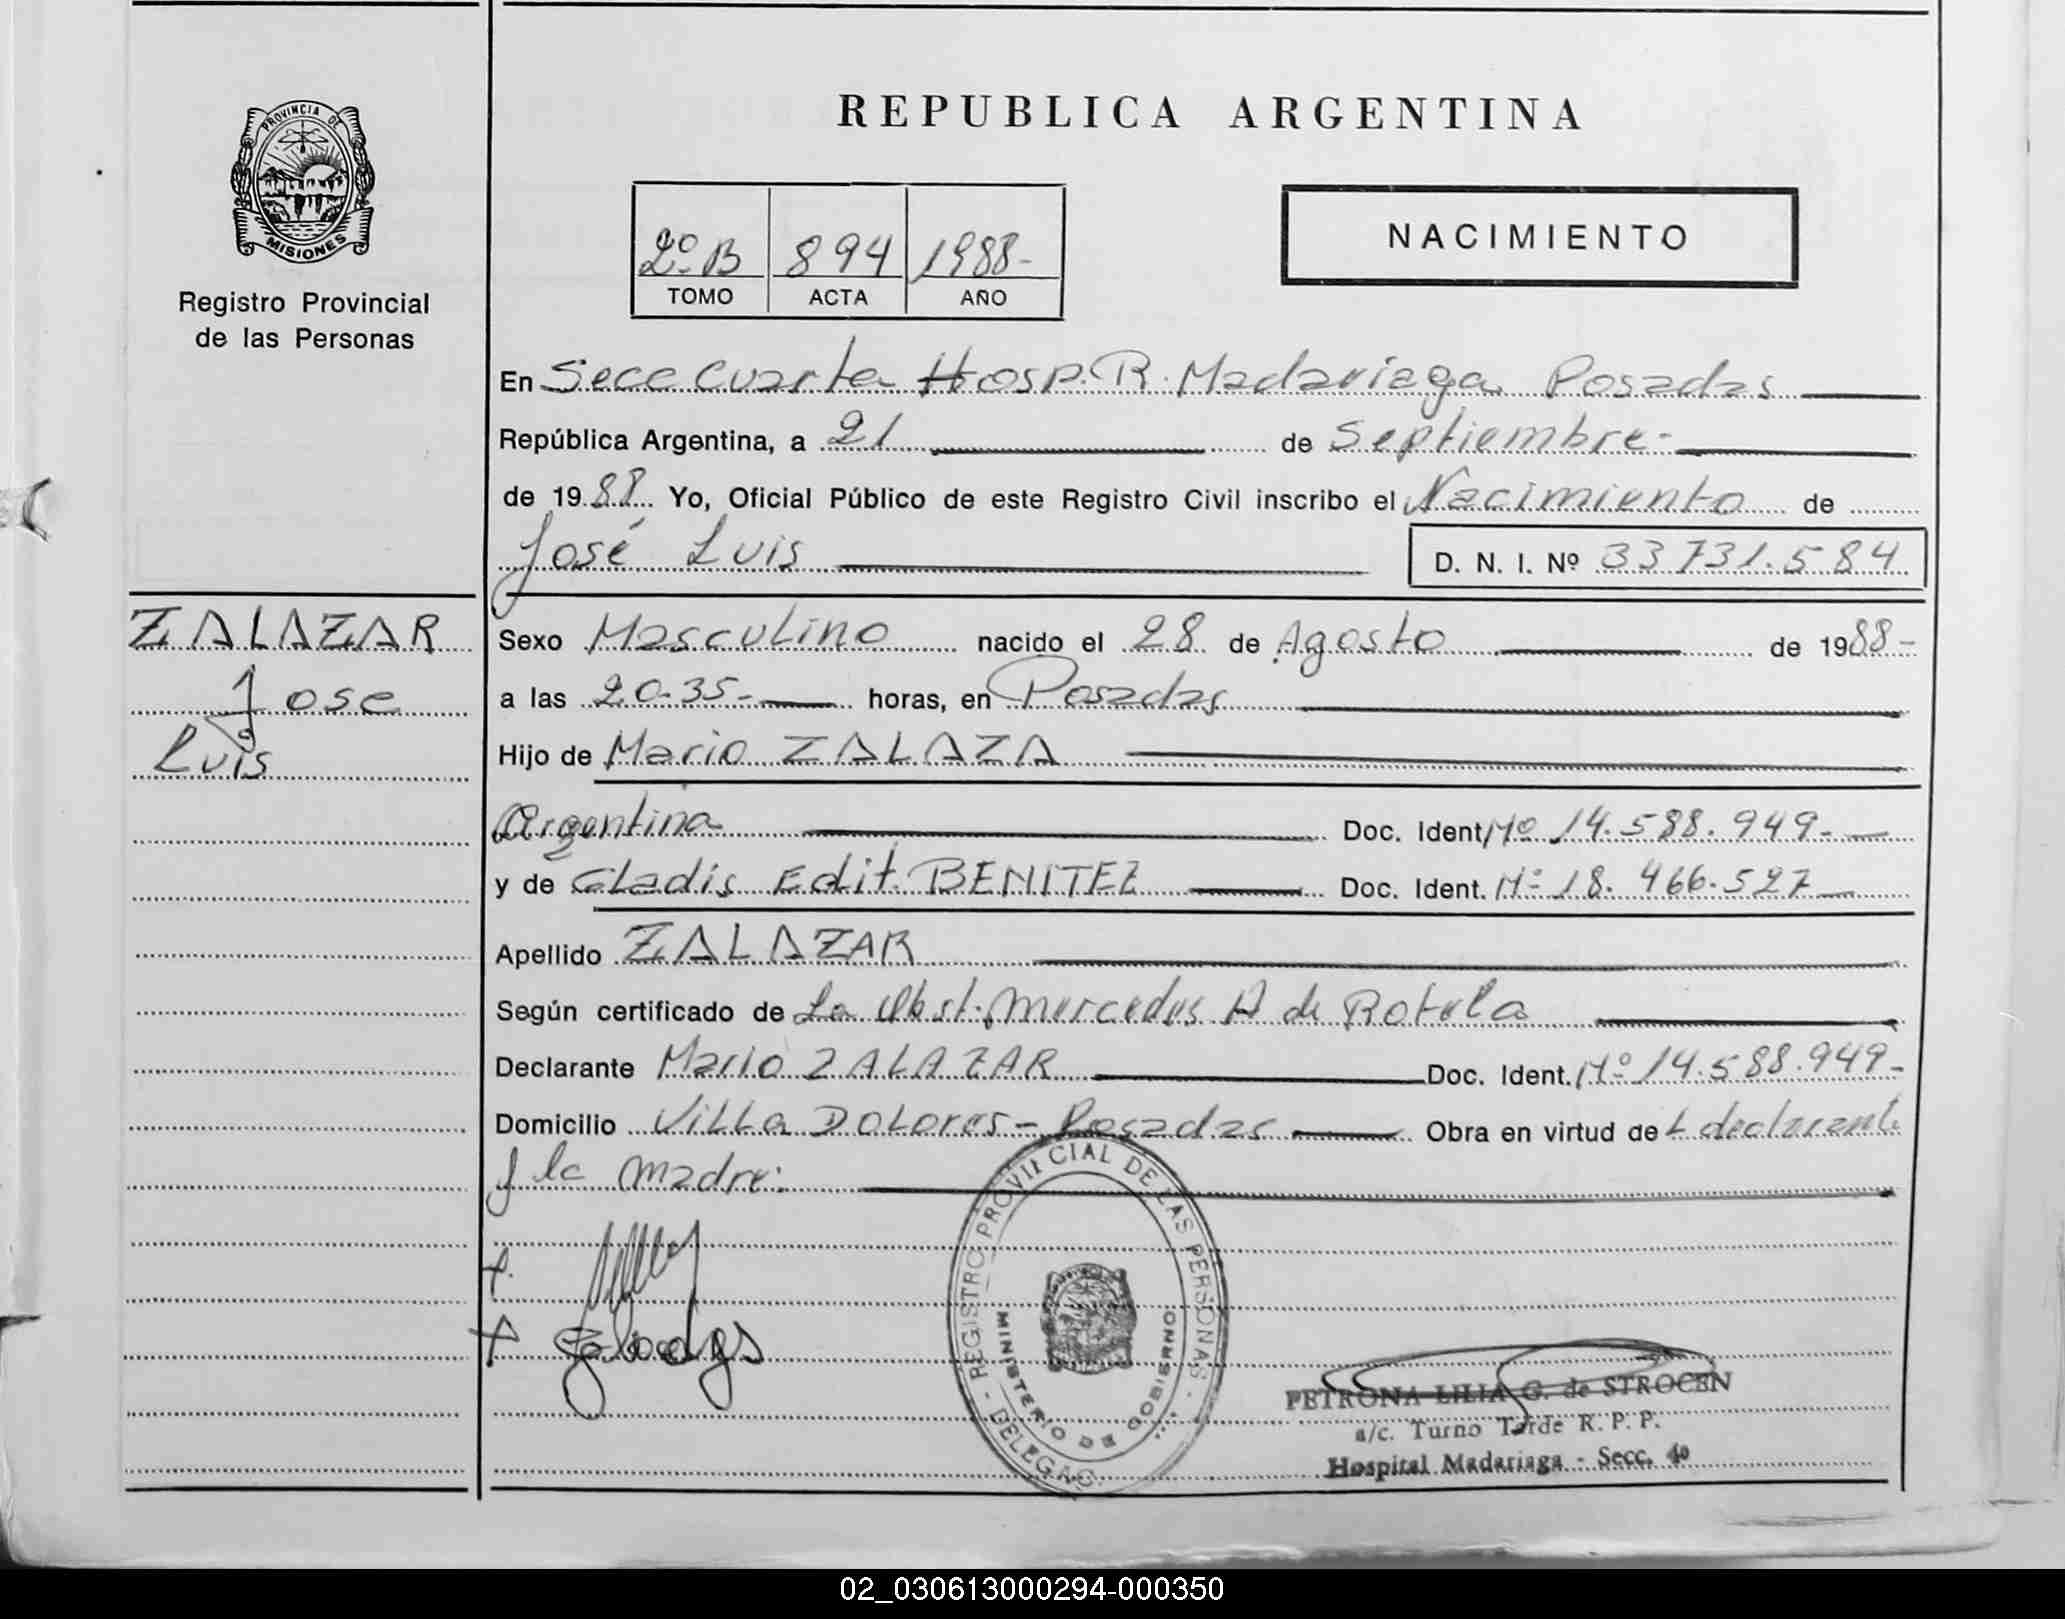 REPUBLICA ARGENTINA
PROVINCIA DE
MISIONES
Registro Provincial
de las Personas
2º B 894 1988-
TOMO ACTA AÑO
NACIMIENTO
En Secc Cuarta Hosp. R. Madariaga Posadas
República Argentina, a 21 de Septiembre-
de 1988 Yo, Oficial Público de este Registro Civil inscribo el Nacimiento de
José Luis D. N. I. Nº 33731.584
ZALAZAR
Jose
Luis
Sexo Masculino nacido el 28 de Agosto de 1988-
a las 20.35- horas, en Posadas
Hijo de Mario ZALAZA
Argentina Doc. Ident. Nº 14.588.949-
y de Gladis Edit. BENITEZ Doc. Ident. Nº 18.466.527
Apellido ZALAZAR
Según certificado de La Obst. Mercedes A de Rotela
Declarante Mario ZALAZAR Doc. Ident. Nº 14.588.949-
Domicilio Villa Dolores - Posadas Obra en virtud de L declarante
y la madre:
REGISTRO PROVINCIAL DE LAS PERSONAS - DELEGAC.
MINISTERIO DE GOBIERNO
PETRONA LILIA G. de STROCEN
a/c. Turno Tarde R. P. P.
Hospital Madariaga - Secc. 4º
02_030613000294-000350